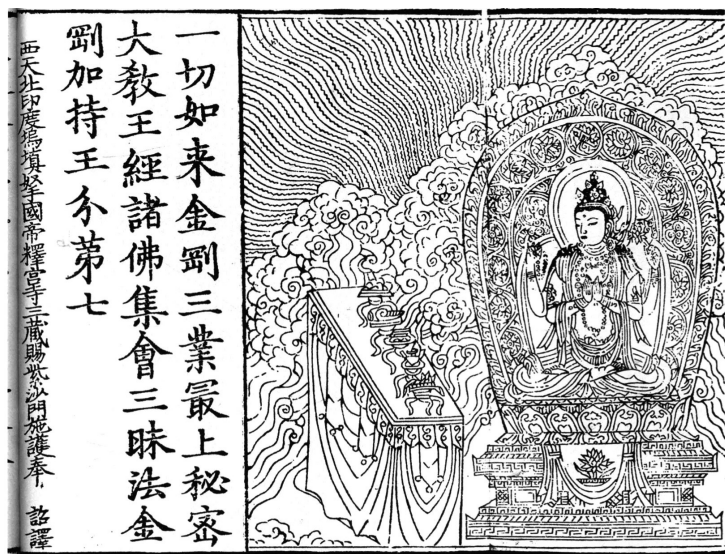 一切如来金剛三業最上秘密
大教王經諸佛集會三昧法金
剛加持王分第七
西天北印度烏填曩國帝釋宮寺三藏賜紫沙門施護奉 詔譯